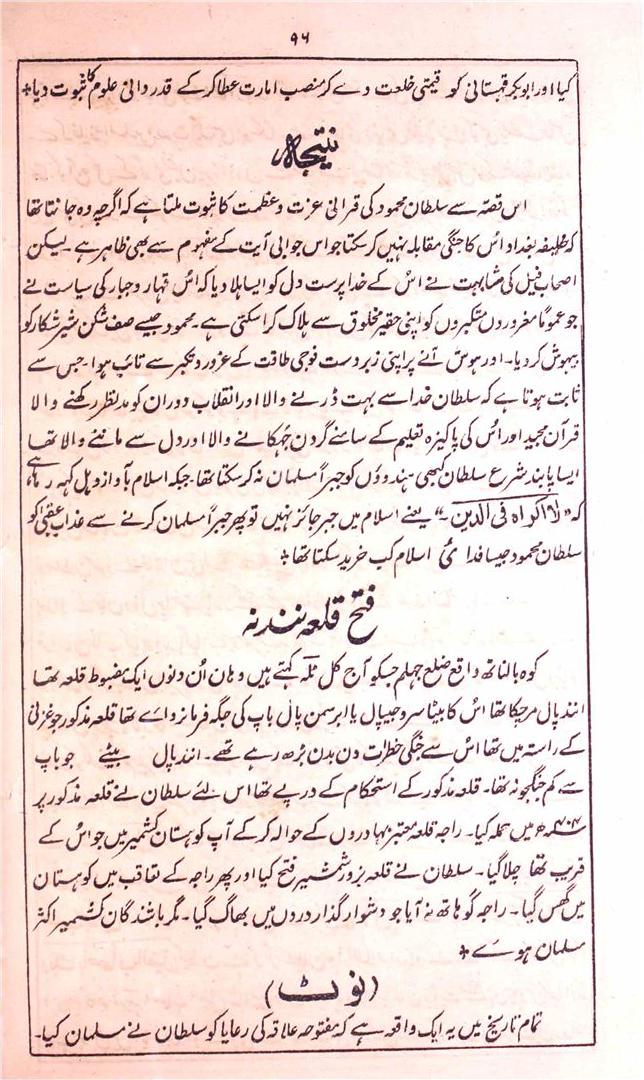 ۹۶
کیا اور ابوبکر قہستانی کو قیمتی خلعت دے کر منصب امارت عطا کر کے قدر دانی علوم کا ثبوت دیا +
نتیجہ
اس قصّہ سے سلطان محمود کی قرانی عزت و عظمت کا ثبوت ملتا ہے کہ اگرچہ وہ جانتا تھا
کہ خلیفہ بغداد اُس کا جنگی مقابلہ نہیں کر سکتا جو اس جوابی آیت کے مفہوم سے بھی ظاہر ہے ۔ لیکن
اصحاب فیل کی مشابہت نے اُس کے خدا پرست دل کو ایسا ہلا دیا کہ اُس قہار و جبار کی سیاست نے
جو عموماً مغروروں متکبروں کو اپنی حقیر مخلوق سے ہلاک کرا سکتی ہے ۔ محمود جیسے صف شکن شیر شکار کو
بیہوش کر دیا ۔ اور ہوش آنے پر اپنی زبردست فوجی طاقت کے غرور و تکبر سے تائب ہوا ۔ جس سے
ثابت ہوتا ہے کہ سلطان خدا سے بہت ڈرنے والا اور انقلاب دوران کو مدنظر رکھنے والا
قرآن مجید اور اُس کی پاکیزہ تعلیم کے سامنے گردن جُہکانے والا اور دل سے ماننے والا تھا
ایسا پابند شرع سلطان کبھی ہندوؤں کو جبراً مسلمان نہ کر سکتا تھا ۔ جبکہ اسلام بآواز دہل کہہ رہا ہے
کہ ‘‘لا اکراہ فی الدین ۔’’ یعنے اسلام میں جبر جائز نہیں تو پھر جبراً مسلمان کرنے سے عذاب عقبیٰ کو
سلطان محمود جیسا فدائی اسلام کب خرید سکتا تھا +
فتح قلعہ نندنہ
کوہ بالناتھ واقع ضلع جہلم جسکو آج کل ٹلہ کہتے ہیں وہاں اُن دنوں ایک مضبوط قلعہ تھا
انندپال مر چکا تھا اُس کا بیٹا سروجیپال یا ابرہمن پال باپ کی جگہ فرمانروا ے تھا قلعہ مذکور جو غزنی
کے راستہ میں تھا اس سے جنگی خطرات دن بدن بڑھ رہے تھے ۔ انندپال بیٹے جو باپ
سے کم جنگجو نہ تھا ۔ قلعہ مذکور کے استحکام کے درپے تھا اس لئے سلطان نے قلعہ مذکور پر
۴۰۴ھ میں حملہ کیا ۔ راجہ قلعہ معتبر بہادروں کے حوالہ کر کے آپ کوہستان کشمیر میں جو اُس کے
قریب تھا چلا گیا ۔ سلطان نے قلعہ بزور شمشیر فتح کیا اور پھر راجہ کے تعاقب میں کوہستان
میں گھس گیا ۔ راجہ گو ہاتھ نہ آیا جو دشوار گذار دروں میں بھاگ گیا ۔ مگر باشندگان کشمیر اکثر
مسلمان ہوے +
(نوٹ)
تمام تاریخ میں یہ ایک واقعہ ہے کہ مفتوحہ علاقہ کی رعایا کو سلطان نے مسلمان کیا ۔